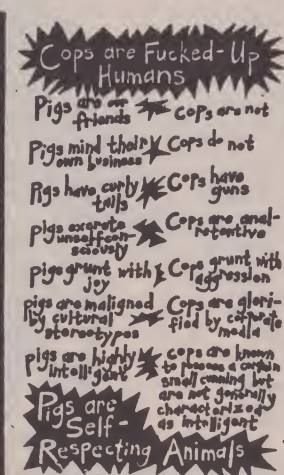 Cops are Fucked-Up
Humans
Pigs are our friends
Cops are not
Pigs mind their own business
Cops do not
Pigs have curly tails
Cops have guns
pigs excrete unselfcon-
sciously
Cops are anal-
retentive
pigs grunt with joy
Cops grunt with aggression
pigs are maligned
by cultural
stereotypes
Cops are glori-
fied by corporate
media
pigs are highly
intelligent
cops are known
to possess a certain
small cunning but
are not generally
characterized
as intelligent
Pigs are
Self-
Respecting Animals